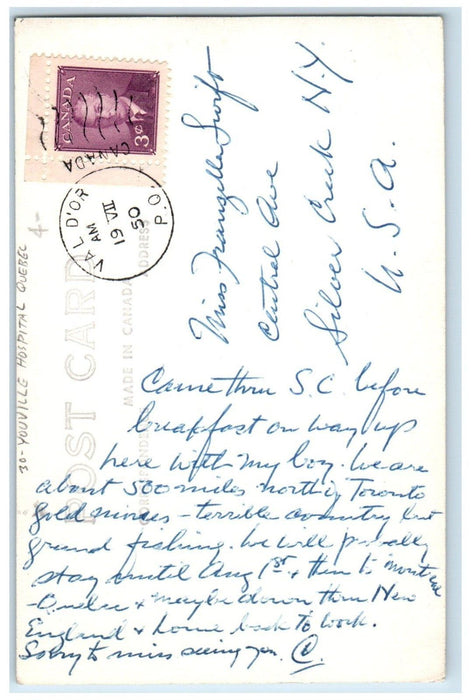 CANADA
3¢
CANADA
VAL D'OR
AM
19 VII
50
P.Q.
POST CARD
MADE IN CANADA
ADDRESS
30-YOUVILLE HOSPITAL QUEBEC
4-
Miss Franzella Swift
Central Ave
Silver Creek N.Y.
U.S.A.
Came thru S.C. before
breakfast on way up
here with my boy. We are
about 500 miles north of Toronto
gold mines - terrible country but
grand fishing. We will probably
stay until Aug 1st & then to Montreal
-Quebec & maybe down thru New
England & home back to work.
Sorry to miss seeing you. C.